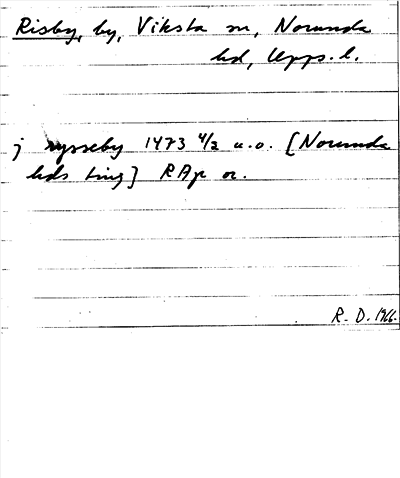 Risby, by, Viksta sn, Norunda
hd, Upps. l.
j rysseby 1473 4/2 u.o. [Norunda
hds ting] RAp or.
R. D. 1966.